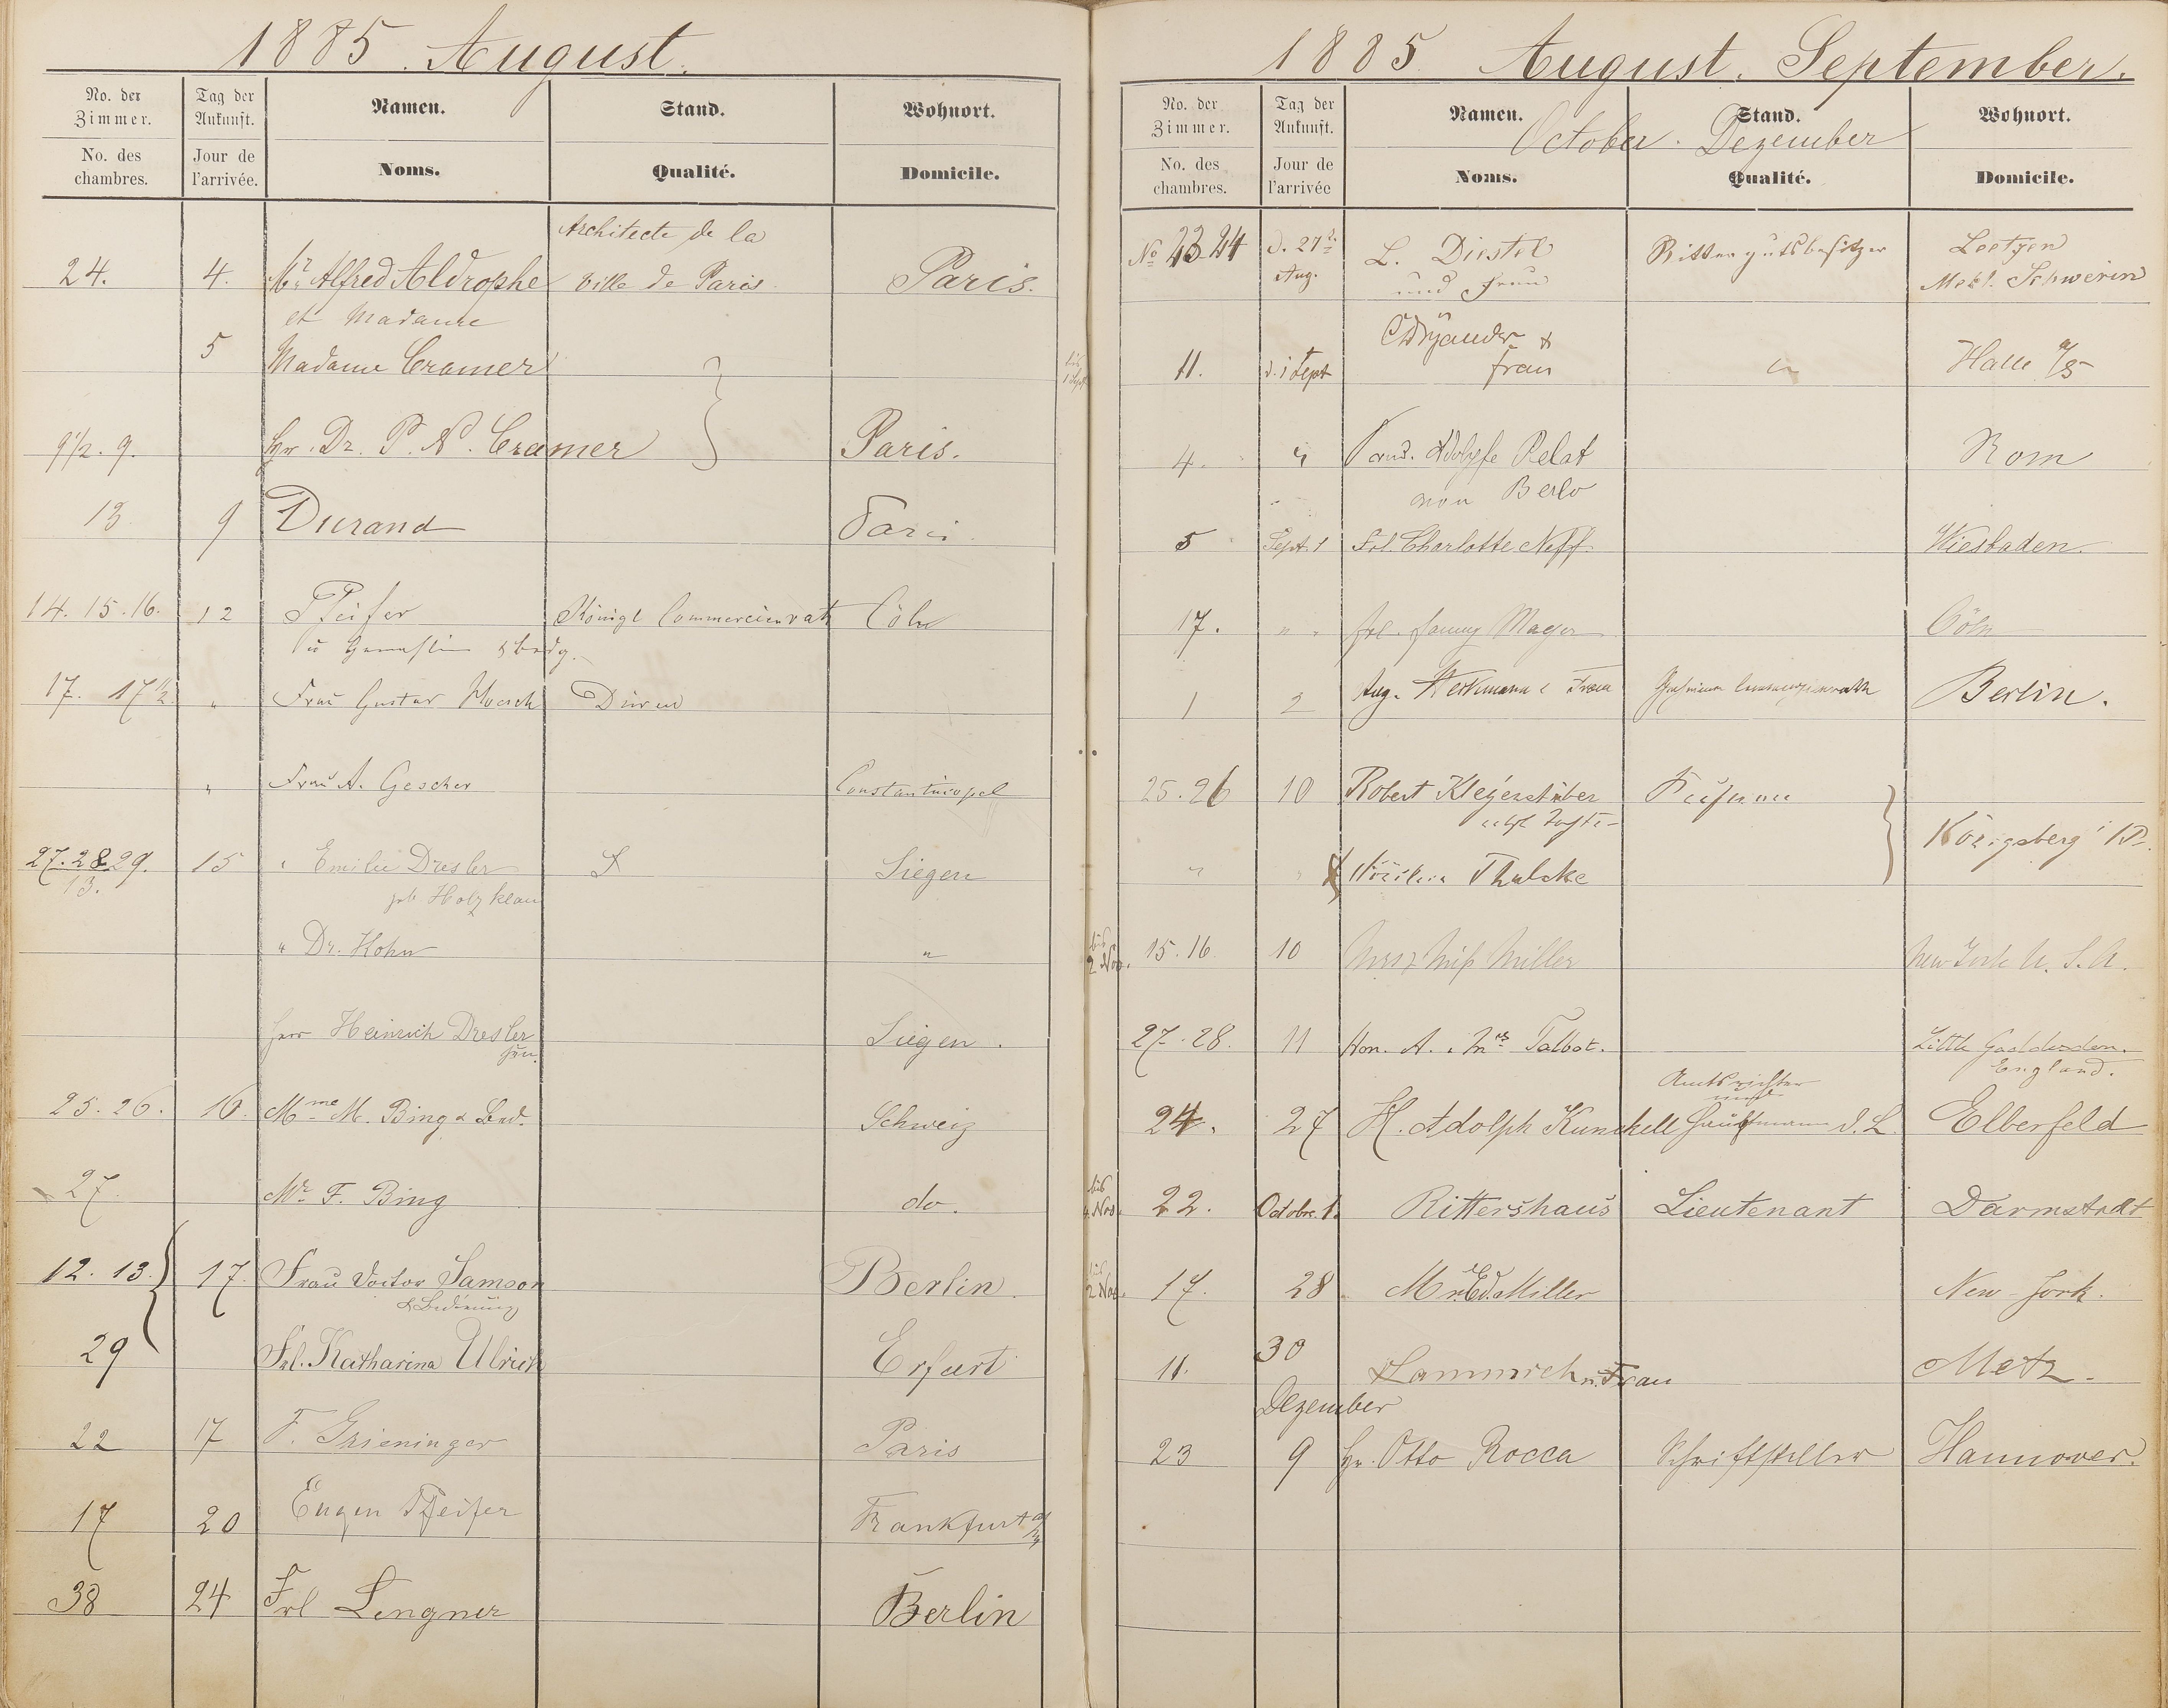 1885. August.
No. der Zimmer. Tag der Ankunft. Namen. Stand. Wohnort.
No. des chambres. Jour de l'arrivée. Noms. Qualité. Domicile.
Architecte de la
24. 4. Mr Alfred Aldrophe ville de Paris Paris.
et Madame
5 Madame Cramer
9 1/2. 9. Hr. Dr. P. N. Cramer Paris.
13 9 Durand Paris
14. 15. 16. 12 Pfeifer Königl Commercienrath Cöln
17. 17 1/2 " Frau Gustav Hoesch Düren
" Frau A. Gescher Constantinopel
27. 28 29. 15 " Emilie Dresler Siegen
13. geb Holzklau
" Dr. Hohn "
Herr Heinrich Dresler Siegen.
jun.
25. 26. 16. Mme M. Bing & Bed. Schweiz
27. Mr F. Bing do.
12. 13. 17. Frau Doctor Samson Berlin.
& Bedienung
29 Frl. Katharina Ulrich Erfurt
22 17 F. Grieninger Paris
17 20 Eugen Pfeifer Frankfurt a/M
38 24 Frl Lengner Berlin
1885 August. September.
October. Dezember
No. der Zimmer. Tag der Ankunft. Namen. Stand. Wohnort.
No. des chambres. Jour de l'arrivée Noms. Qualité. Domicile.
No 23 24 d. 27t. L. Diestel Rittergutsbesitzer
Aug. und Frau Mekl. Schwerin
bis
1 Sept
Dryander &
11. d. 1 Sept frau Halle a/S
4. 4 Adolfe Pelat Rom
von
5 Sept. 1 Frl. Charlotte Neff. Wiesbaden.
17. " " frl. Fanny Mayer Cöln
1 2 Aug. & Frau Berlin.
25. 26 10 Robert Kleyenstüber
Königsberg i/Pr.
" " &
bis
2 Nov. 15. 16 10 Mrs & Miss Miller New York U. S. A.
27. 28. 11 Hon. A. & Mrs Talbot. Little Gaddesden.
England.
Amtsrichter
und
24. 27 H. Adolph Kunchell Hauptmann d. L. Elberfeld
bis
4. Nov. 22. Octobre. 1. Rittershaus Lieutenant Darmstadt
bis
2 Nov. 17. 28 Mr Ed. Miller New-York.
11. 30 u. Frau Metz.
Dezember
23 9 Hr. Otto Rocca Schriftsteller Hannover.